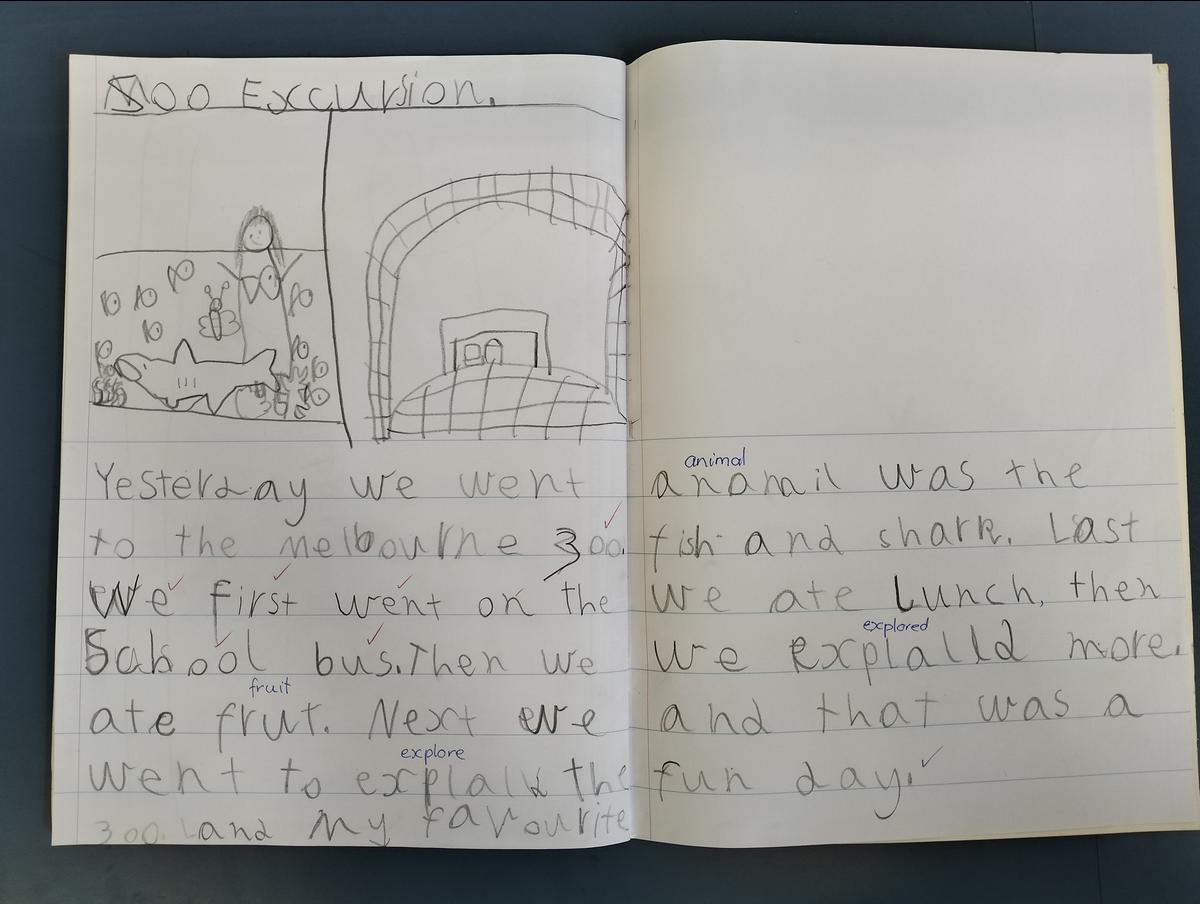 Zoo Excursion.
Yesterday we went
to the Melbourne Zoo.
We first went on the
School bus. Then we
fruit
ate frut. Next we
explore
went to explalld the
Zoo. and my favourite
animal
anamail was the
fish and shark. Last
we ate Lunch, then
explored
we explalld more.
and that was a
fun day.